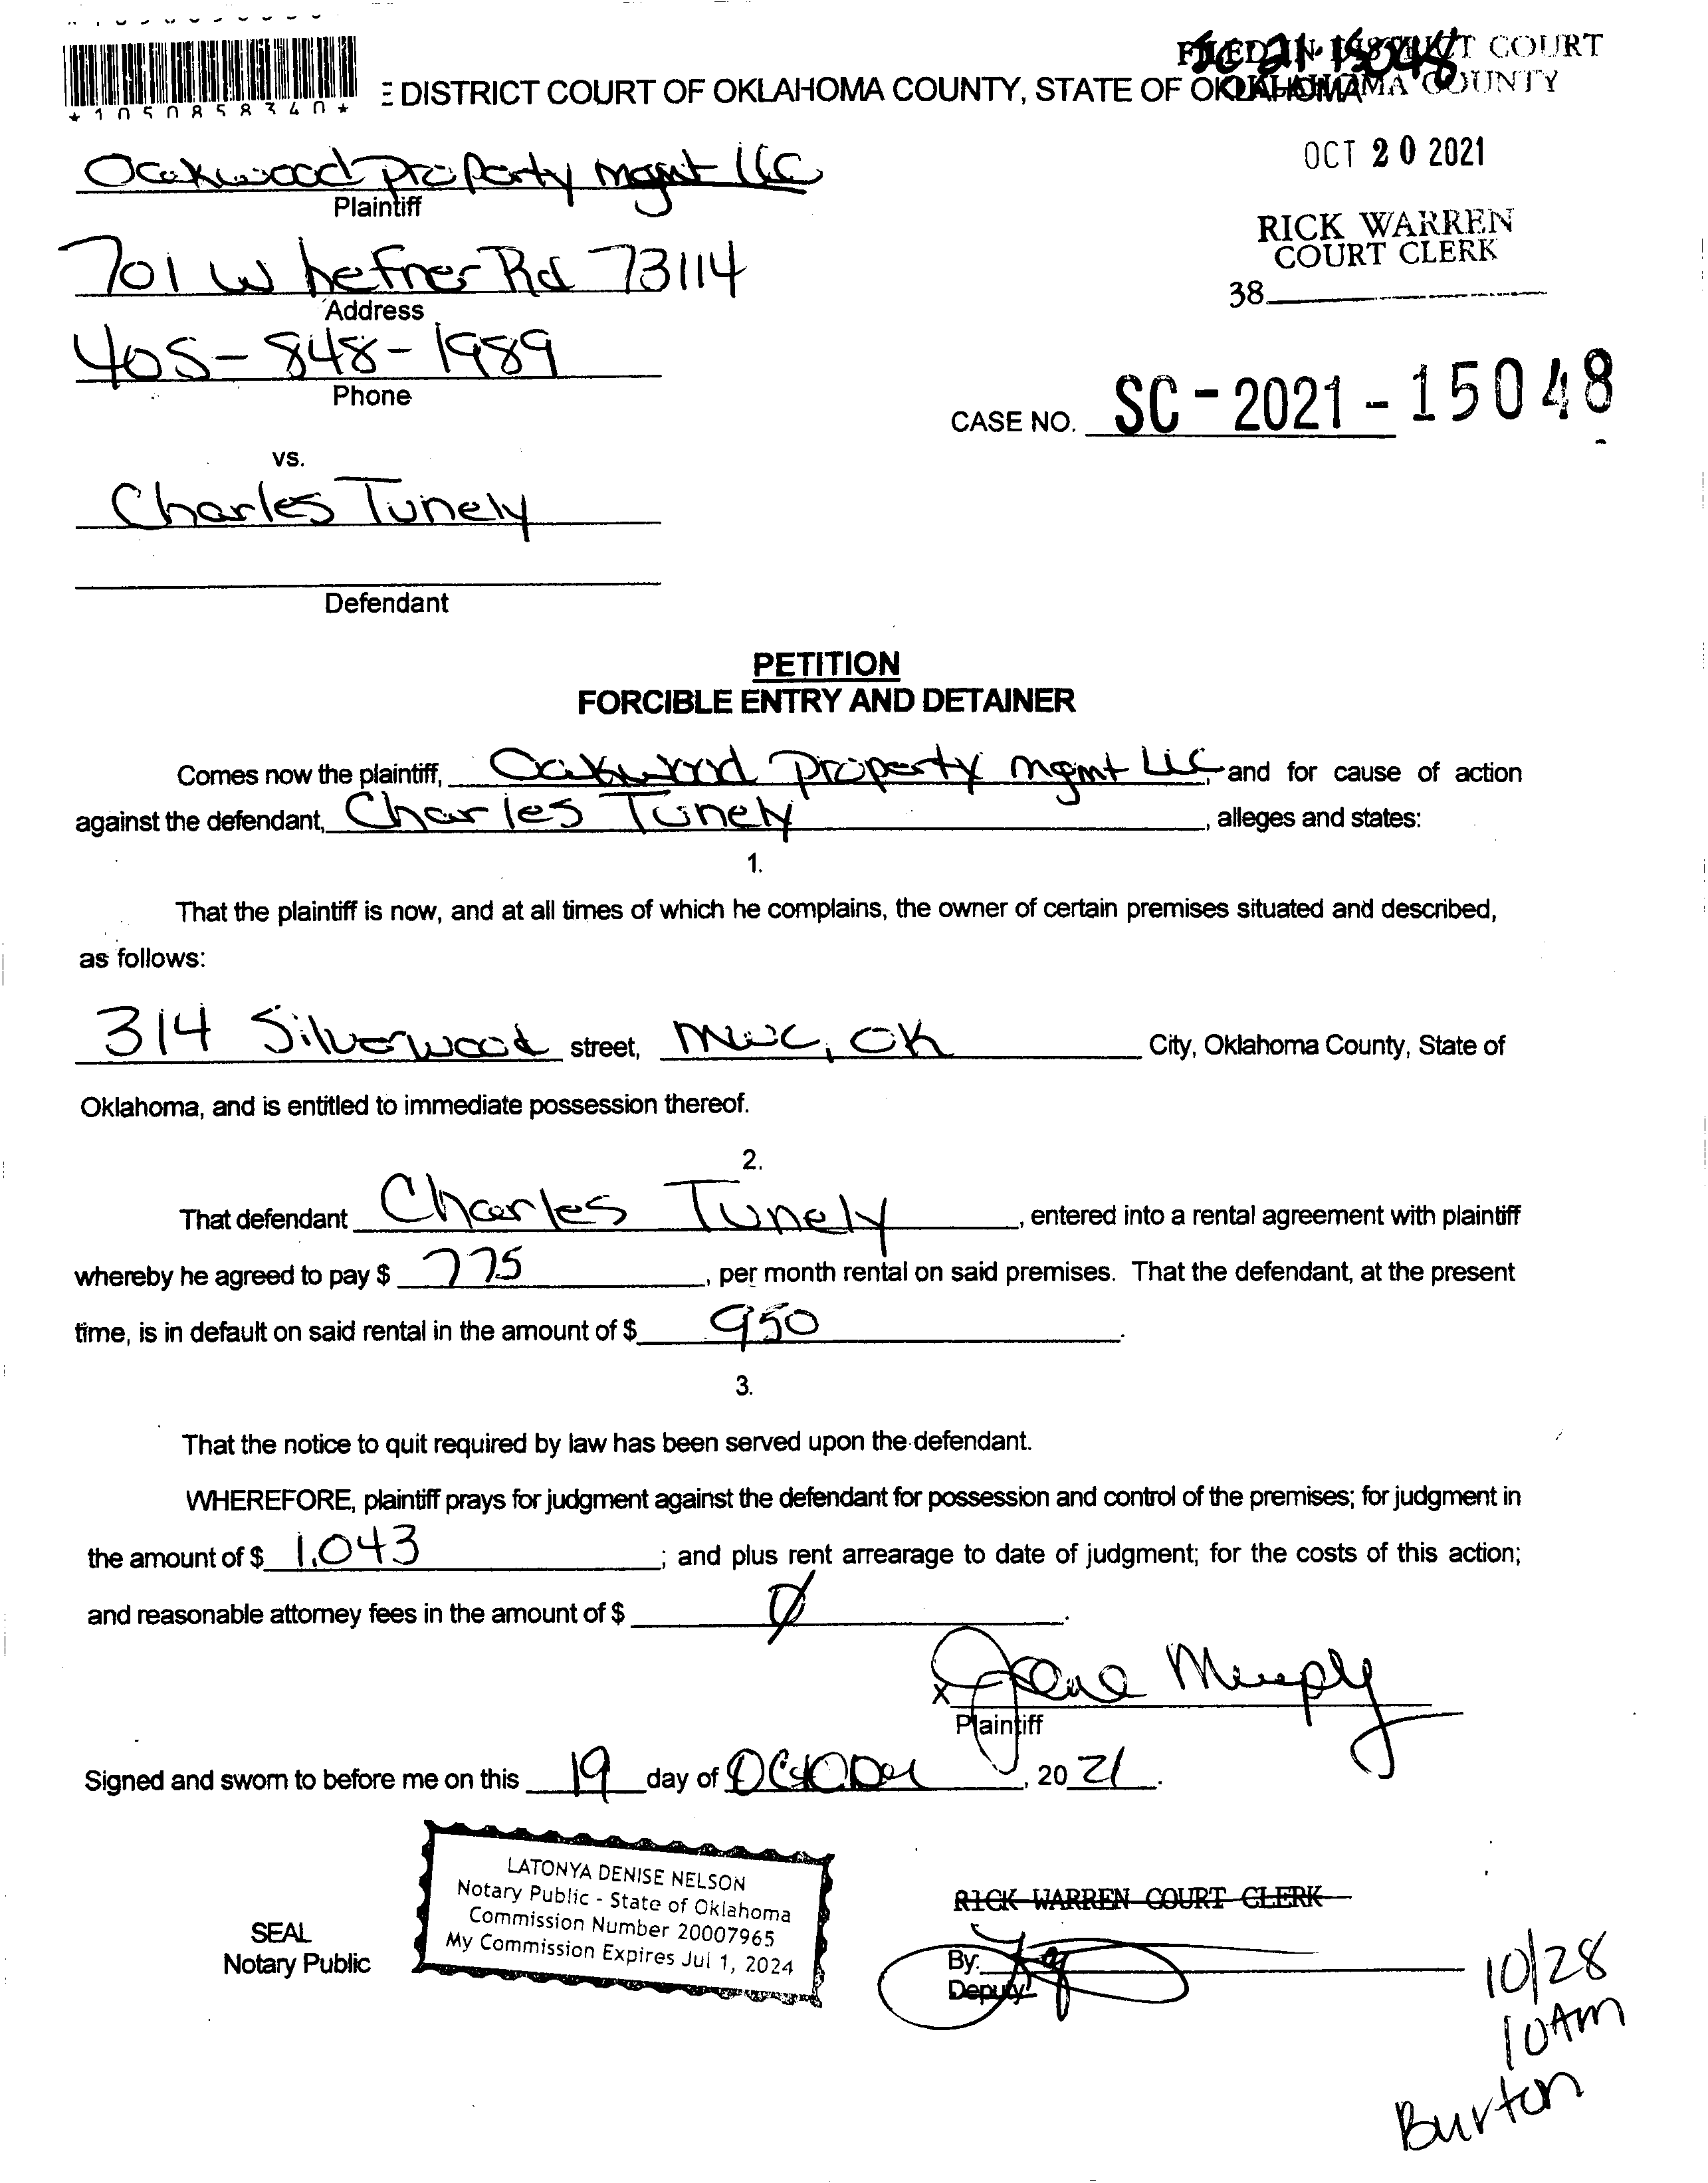 *1050858340*
SC-21-15048
FILED IN DISTRICT COURT
OKLAHOMA COUNTY
E DISTRICT COURT OF OKLAHOMA COUNTY, STATE OF OKLAHOMA
OCT 20 2021
RICK WARREN
COURT CLERK
38
Oakwood Property Mgmt LLC
Plaintiff
701 W hefner Rd 73114
Address
405-848-1989
Phone
CASE NO. SC-2021-15048
vs.
Charles Tunely
Defendant
PETITION
FORCIBLE ENTRY AND DETAINER
Comes now the plaintiff, Oakwood Property Mgmt LLC, and for cause of action
against the defendant, Charles Tunely, alleges and states:
1.
That the plaintiff is now, and at all times of which he complains, the owner of certain premises situated and described,
as follows:
314 Silverwood street, MWC, OK City, Oklahoma County, State of
Oklahoma, and is entitled to immediate possession thereof.
2.
That defendant Charles Tunely, entered into a rental agreement with plaintiff
whereby he agreed to pay $ 775, per month rental on said premises. That the defendant, at the present
time, is in default on said rental in the amount of $ 950.
3.
That the notice to quit required by law has been served upon the defendant.
WHEREFORE, plaintiff prays for judgment against the defendant for possession and control of the premises; for judgment in
the amount of $ 1,043; and plus rent arrearage to date of judgment; for the costs of this action;
and reasonable attorney fees in the amount of $ Ø.
x Murphy
Plaintiff
Signed and sworn to before me on this 19 day of October, 20 21.
LATONYA DENISE NELSON
Notary Public - State of Oklahoma
Commission Number 20007965
My Commission Expires Jul 1, 2024
SEAL
Notary Public
RICK WARREN COURT CLERK
By:
Deputy
10/28
10AM
Burton